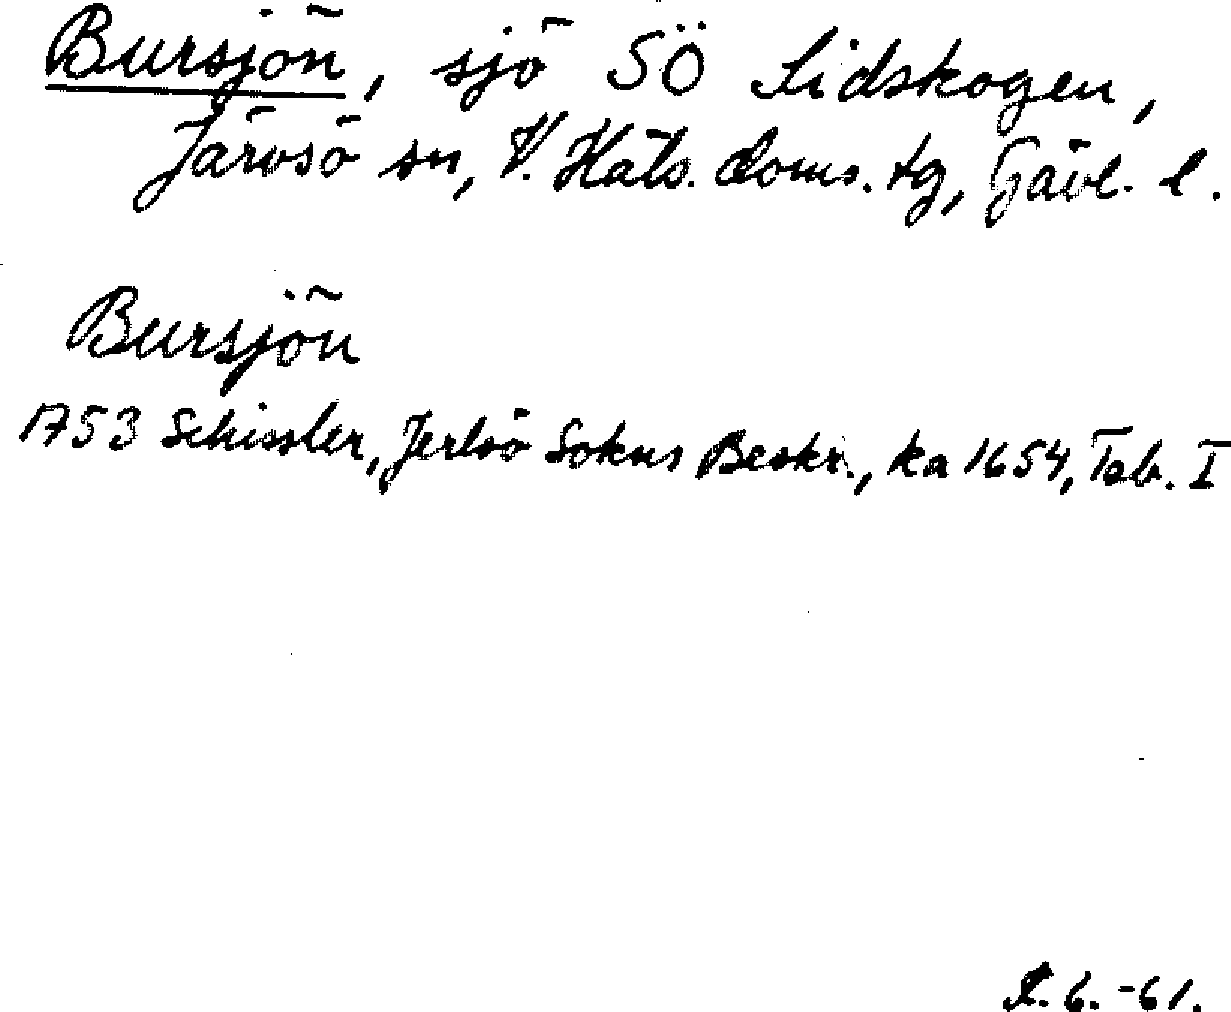 Bursjön, sjö SÖ Lidskogen,
Järvsö sn, V. Häls. doms. tg, Gävl. l.
Bursjön
1753 Schissler, Jerlsö Sokns Beskr., ka 1654, Tab. I
6. -61.